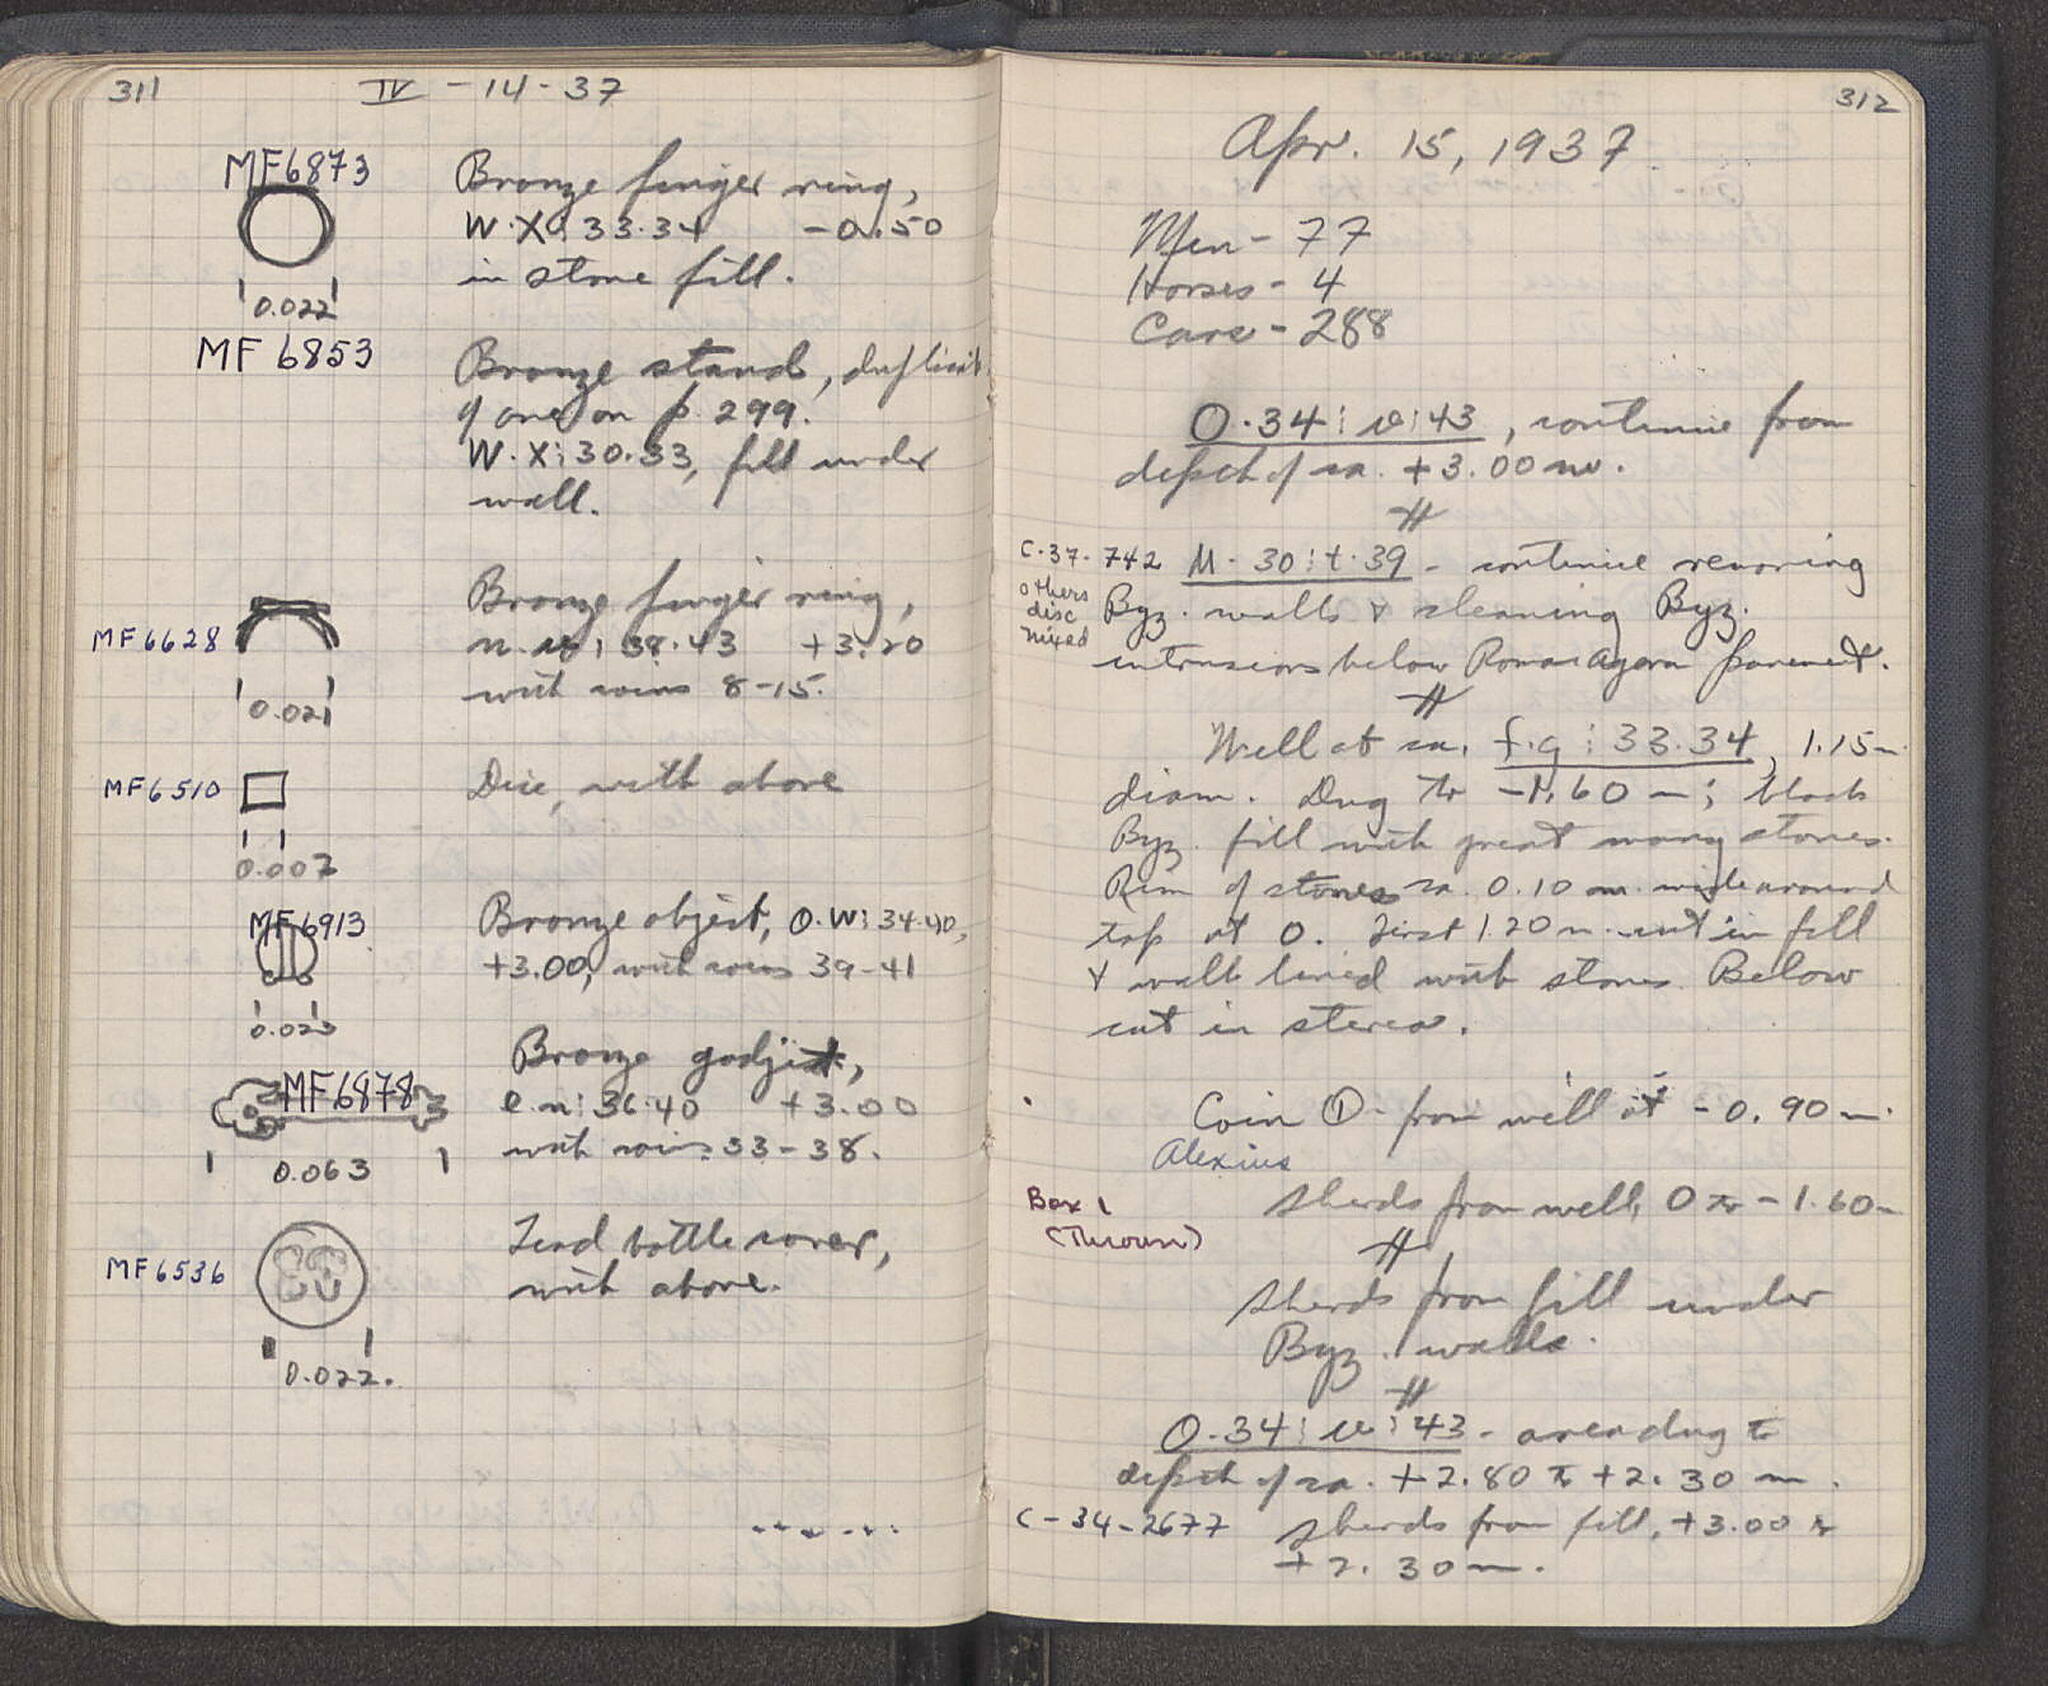 311
IV - 14 - 37
MF6873
Bronze finger ring,
W·X: 33·34 -0.50
in stone fill.
0.022
MF 6853
Bronze stand, duplicate
of one on p. 299.
W·X: 30·33, fill under
wall.
Bronze finger ring,
MF6628
38·43 +3.20
with coins 8-15.
0.021
MF6510
Dice, with above
0.007
MF6913
Bronze object, O·W: 34·40,
+3.00, with coins 39-41
0.023
Bronze gadjet,
MF6878
l·n: 36·40 +3.00
with coins 33-38.
0.063
Lead bottle cover,
MF6536
with above.
0.022.
312
Apr. 15, 1937.
Men - 77
Horses - 4
Cars - 288
O·34: v: 43, continue from
depth of ca. +3.00 m.
C·37·742 M·30: t·39 - continue removing
others
disc
mixed
Byz. walls & cleaning Byz.
intrusions below Roman Agora pavement.
Well at ca. f·g: 33·34, 1.15 m.
diam. Dug to -1.60 m; black
Byz. fill with great many stones.
Rim of stones ca. 0.10 m. wide around
top at 0. First 1.20 m. cut in fill
& wall lined with stones. Below
cut in stereo.
Coin ① - from well at -0.90 m.
Alexius
Box 1
(Thrown)
Sherds from well, 0 to -1.60 m
Sherds from fill under
Byz. walls.
O·34: v: 43 - area dug to
depth of ca. +2.80 to +2.30 m.
C-34-2677 Sherds from fill, +3.00 to
+2.30 m.